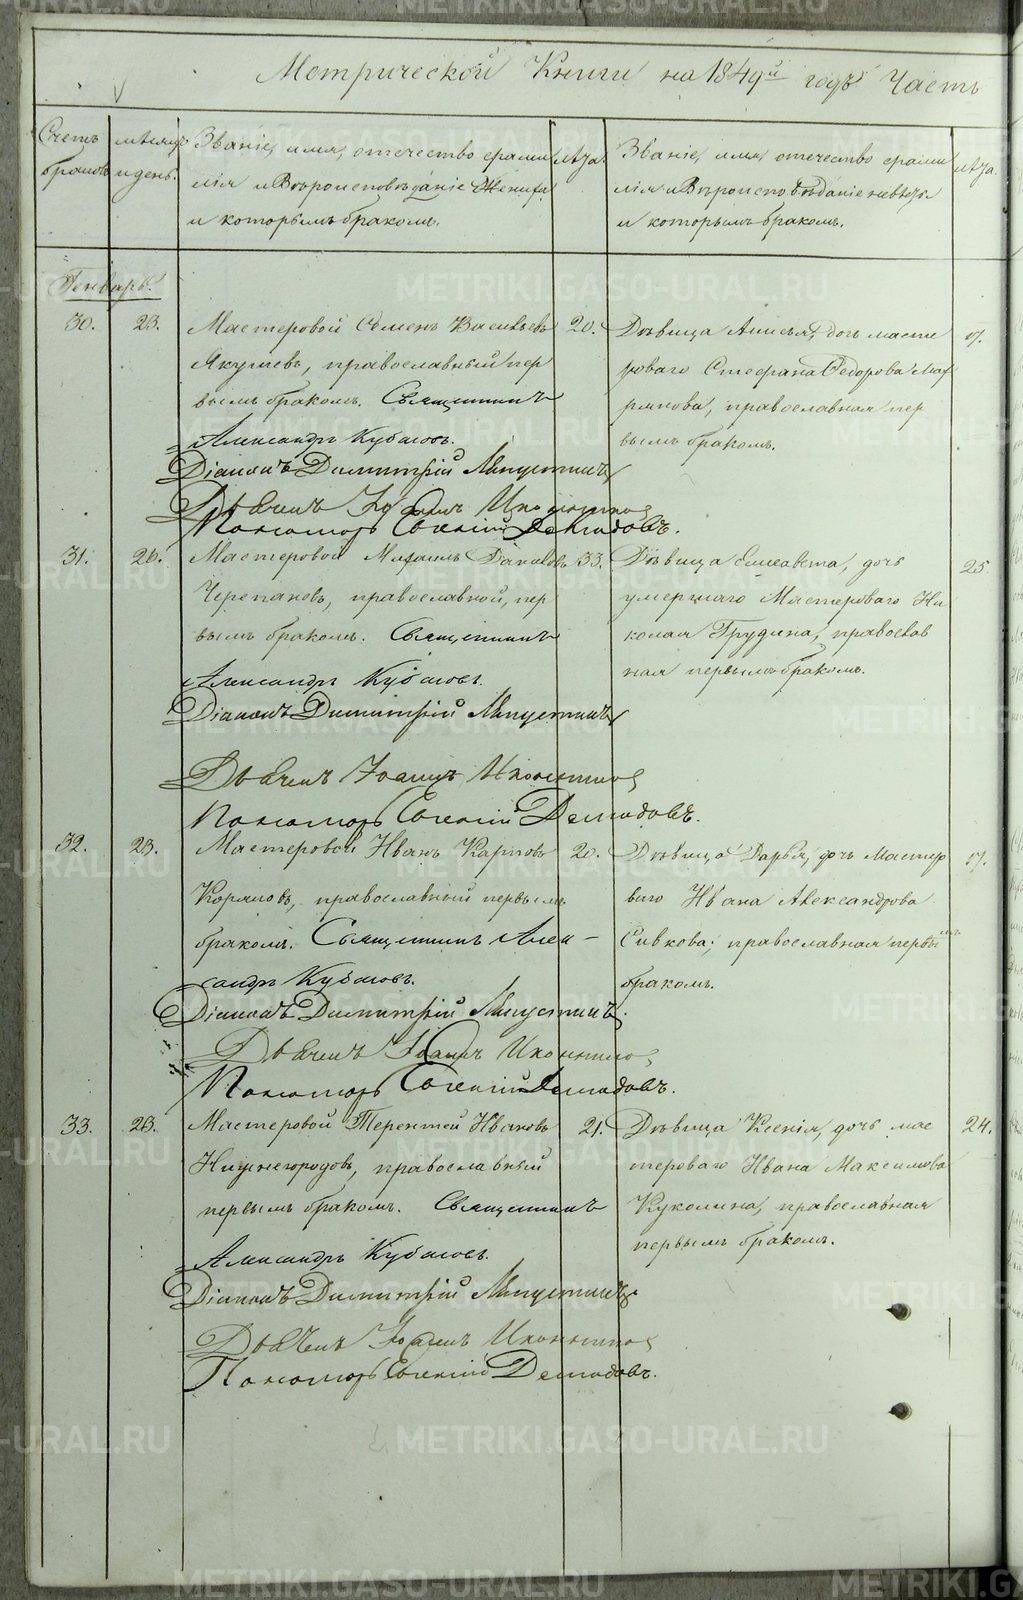 Метрической Книги на 1849й годъ Часть
Счетъ браковъ
мѣсяцъ и день.
Званіе, имя, отечество фами
лія и Вѣроисповѣданіе Жениха
и которымъ бракомъ.
лѣта.
Званіе, имя, отечество фами
лія и Вѣроисповѣданіе невѣсты
и которымъ бракомъ.
лѣта.
Генварь.
30.
23.
Мастеровой Семенъ Васильевъ
Якушевъ, православный пер
вымъ бракомъ. Священникъ
Александръ Кубасовъ.
Діаконъ Димитрій
Дьячекъ Іоаннъ
Пономарь Евгеній Демидовъ.
20.
Дѣвица Анисья, дочь масте
роваго Стефана Федорова
православная пер
вымъ бракомъ.
17.
31.
26.
Мастеровой Михаилъ
Черепановъ, православной, пер
вымъ бракомъ. Священникъ
Александръ Кубасовъ.
Діаконъ Димитрій
Дьячекъ Іоаннъ
Пономарь Евгеній Демидовъ.
33.
Дѣвица Елисавета, дочь
умершаго Мастероваго Ни
колая Грудина, православ
ная первымъ бракомъ.
25.
32.
23.
Мастеровой Иванъ Карповъ
православный первымъ
бракомъ. Священникъ Алек-
сандръ Кубасовъ.
Діаконъ Димитрій
Дьячекъ Іоаннъ
Пономарь Евгеній Демидовъ.
20.
Дѣвица Дарья, дочь Мастер
ваго Ивана Александрова
Сивкова, православная первымъ
бракомъ.
17.
33.
23.
Мастеровой Терентей Ивановъ
Нижегородовъ, православный
первымъ бракомъ. Священникъ
Александръ Кубасовъ.
Діаконъ Димитрій
Дьячекъ Іоаннъ
Пономарь Евгеній Демидовъ.
21.
Дѣвица Ксенія, дочь мас
тероваго Ивана Максимова
Куколина, православная
первымъ бракомъ.
24.
METRIKI.GASO-URAL.RU